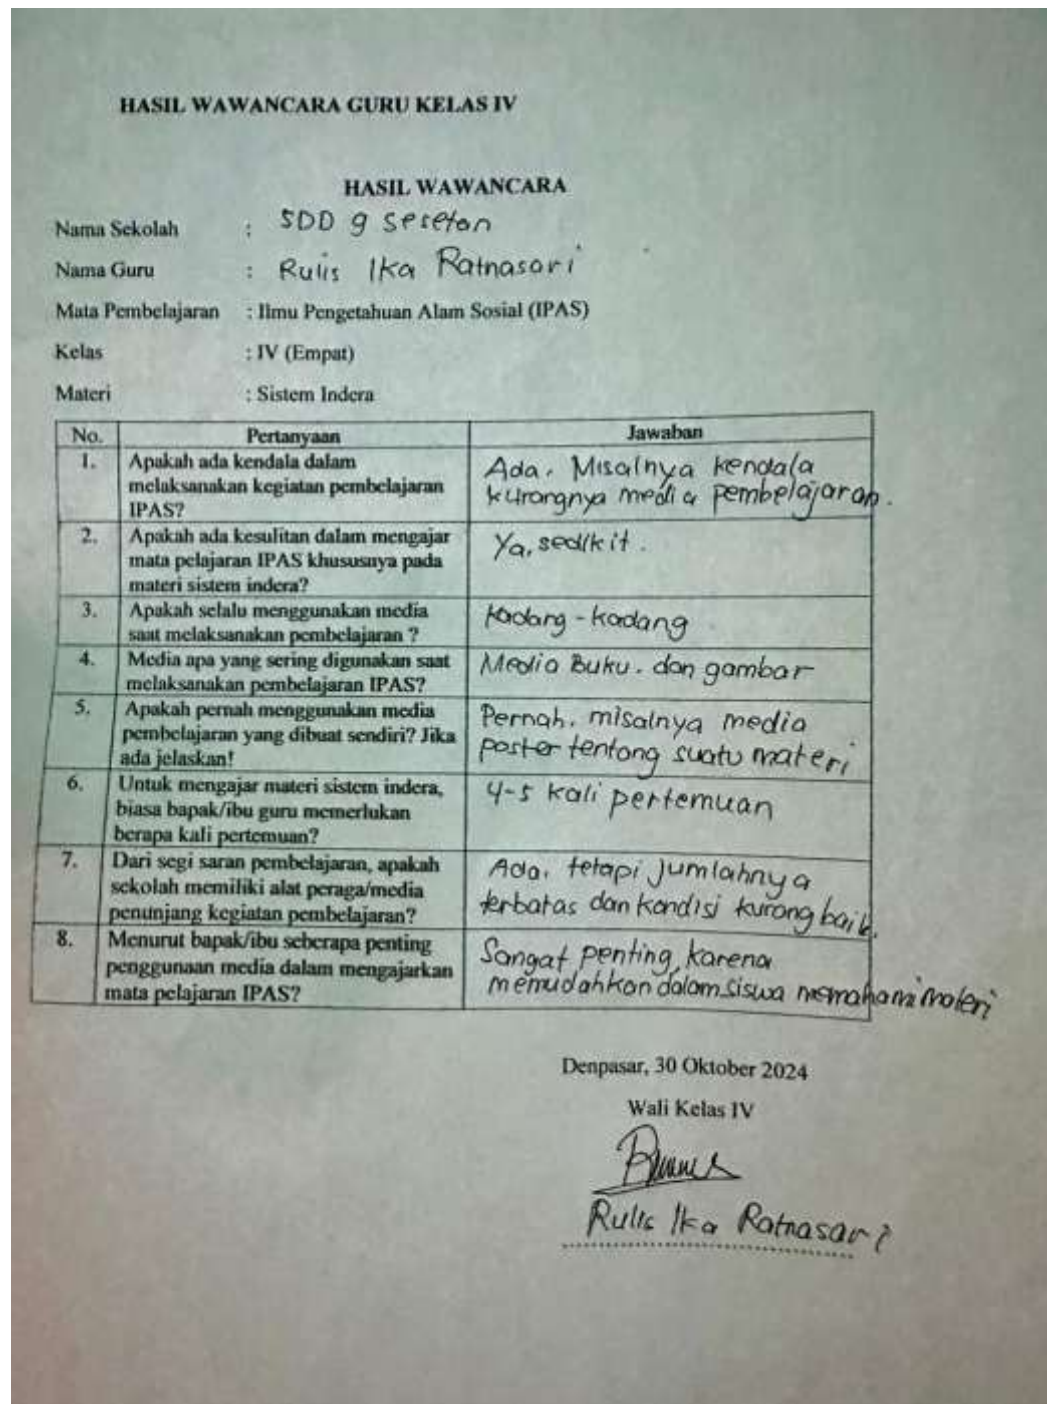 HASIL WAWANCARA GURU KELAS IV
HASIL WAWANCARA
Nama Sekolah : SDD 9 Sesetan
Nama Guru : Rulis Ika Ratnasari
Mata Pembelajaran : Ilmu Pengetahuan Alam Sosial (IPAS)
Kelas : IV (Empat)
Materi : Sistem Indera
No. Pertanyaan Jawaban
1. Apakah ada kendala dalam
melaksanakan kegiatan pembelajaran
IPAS?
Ada. Misalnya kendala
kurangnya media pembelajaran.
2. Apakah ada kesulitan dalam mengajar
mata pelajaran IPAS khususnya pada
materi sistem indera?
Ya, sedikit.
3. Apakah selalu menggunakan media
saat melaksanakan pembelajaran ?
Kadang - kadang
4. Media apa yang sering digunakan saat
melaksanakan pembelajaran IPAS?
Media Buku. dan gambar
5. Apakah pernah menggunakan media
pembelajaran yang dibuat sendiri? Jika
ada jelaskan!
Pernah. misalnya media
poster tentang suatu materi
6. Untuk mengajar materi sistem indera,
biasa bapak/ibu guru memerlukan
berapa kali pertemuan?
4-5 kali pertemuan
7. Dari segi saran pembelajaran, apakah
sekolah memiliki alat peraga/media
penunjang kegiatan pembelajaran?
Ada, tetapi jumlahnya
terbatas dan kondisi kurang baik.
8. Menurut bapak/ibu seberapa penting
penggunaan media dalam mengajarkan
mata pelajaran IPAS?
Sangat penting, karena
memudahkan dalam siswa memahami materi
Denpasar, 30 Oktober 2024
Wali Kelas IV
Rulis Ika Ratnasari